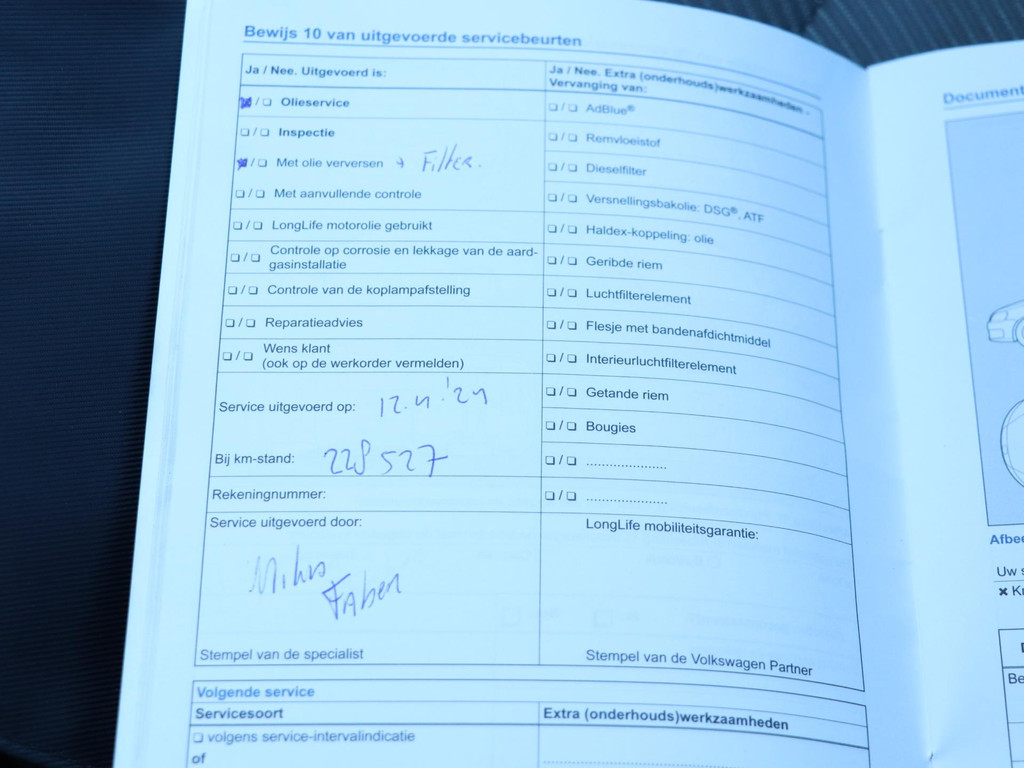 Bewijs 10 van uitgevoerde servicebeurten
Ja / Nee. Uitgevoerd is:
❏ / ❏ Olieservice
❏ / ❏ Inspectie
❏ / ❏ Met olie verversen → Filter.
❏ / ❏ Met aanvullende controle
❏ / ❏ LongLife motorolie gebruikt
❏ / ❏ Controle op corrosie en lekkage van de aard-
gasinstallatie
❏ / ❏ Controle van de koplampafstelling
❏ / ❏ Reparatieadvies
❏ / ❏ Wens klant
(ook op de werkorder vermelden)
Service uitgevoerd op: 12.4.'24
Bij km-stand: 228527
Rekeningnummer:
Service uitgevoerd door:
Faber
Stempel van de specialist
Ja / Nee. Extra (onderhouds)werkzaamheden -
Vervanging van:
❏ / ❏ AdBlue®
❏ / ❏ Remvloeistof
❏ / ❏ Dieselfilter
❏ / ❏ Versnellingsbakolie: DSG®, ATF
❏ / ❏ Haldex-koppeling: olie
❏ / ❏ Geribde riem
❏ / ❏ Luchtfilterelement
❏ / ❏ Flesje met bandenafdichtmiddel
❏ / ❏ Interieurluchtfilterelement
❏ / ❏ Getande riem
❏ / ❏ Bougies
❏ / ❏ .....................
❏ / ❏ .....................
LongLife mobiliteitsgarantie:
Stempel van de Volkswagen Partner
Volgende service
Servicesoort
❏ volgens service-intervalindicatie
of
Extra (onderhouds)werkzaamheden
Document
Afbee
Uw s